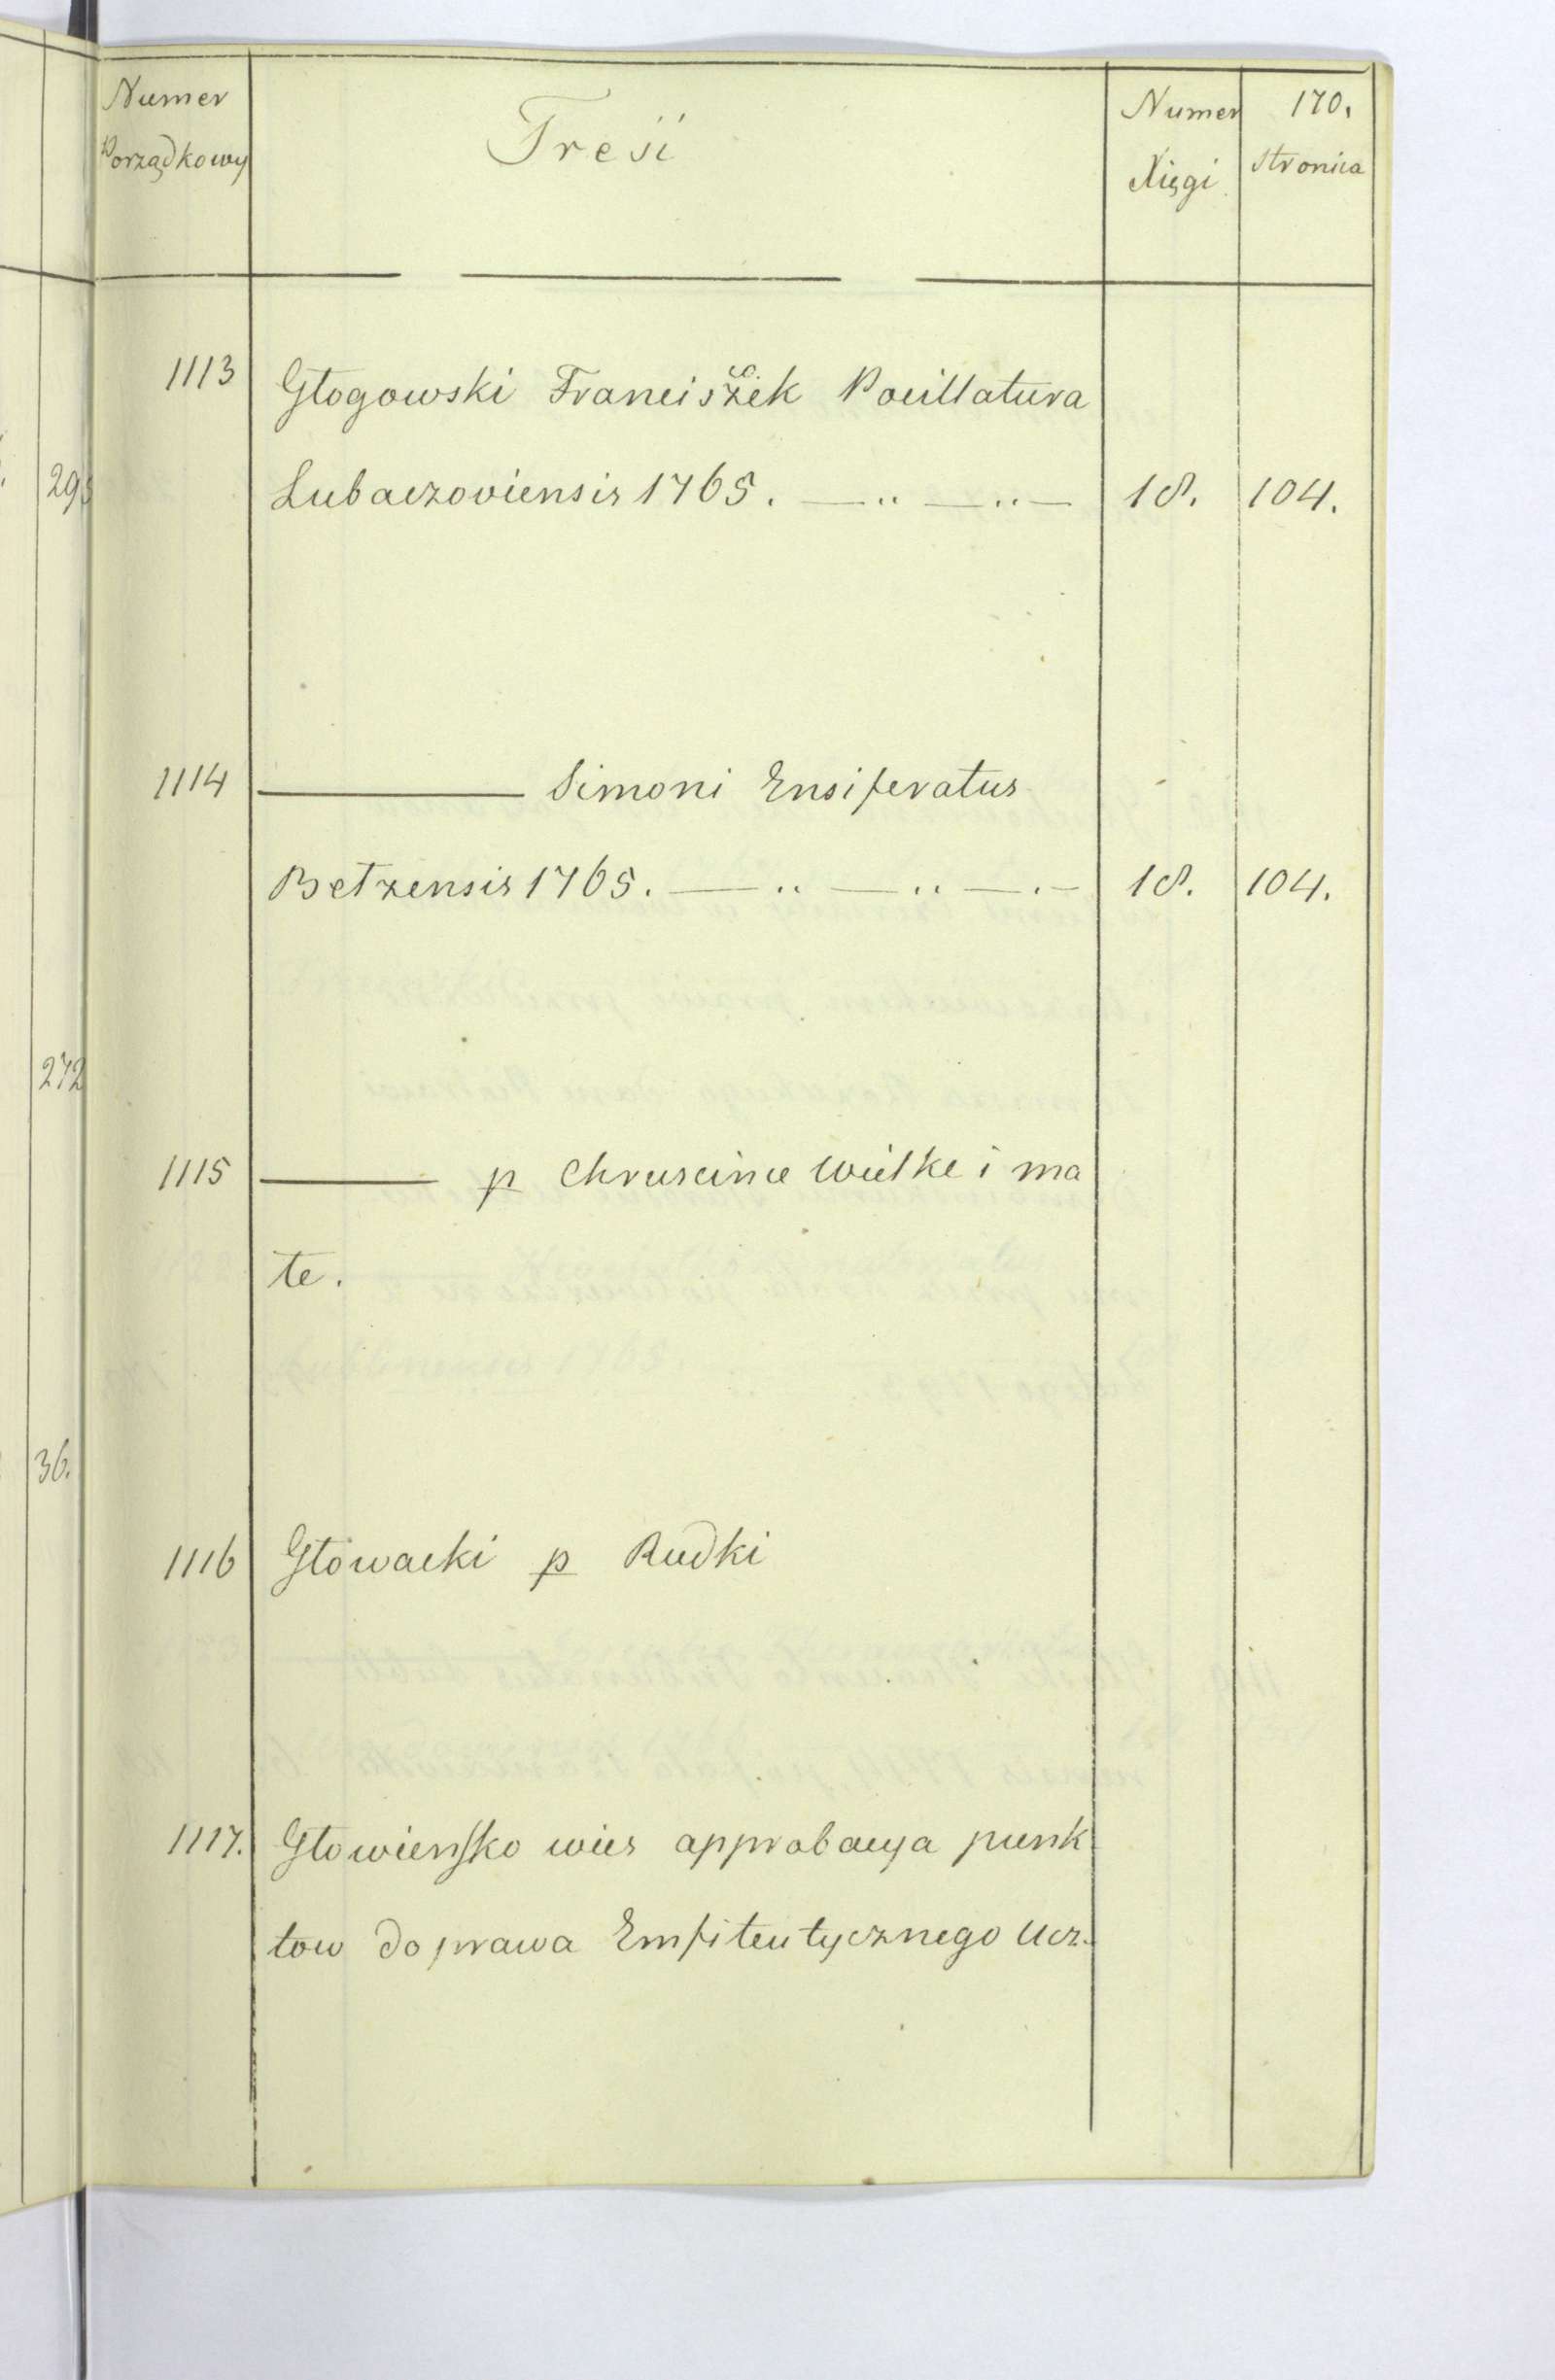 295
272
36.
Numer Porządkowy
Treść
Numer Xięgi
170. Stronica
1113 Głogowski Franciszek Pocillatura
Lubaczoviensis 1765. 18. 104.
1114 ——— Simoni Ensiferatus
Bełzensis 1765. 18. 104.
1115 ——— p Chruscince Wielke i ma
łe.
1116 Głowacki p Rudki
1117. Głowiensko wies approbacya punk
tow do prawa Emfiteutycznego Ucz.